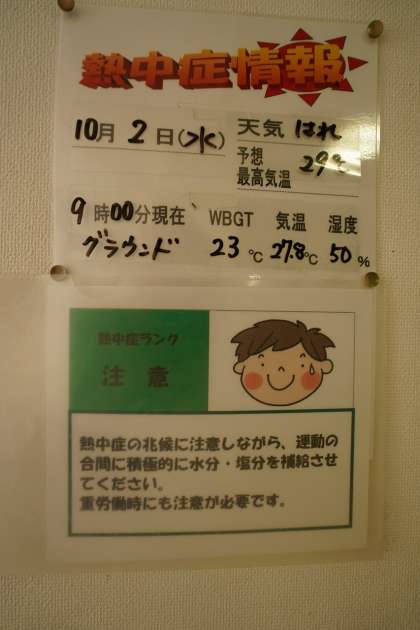 熱中症情報
10月 2日(水) 天気 はれ
予想
最高気温 29℃
9時00分現在 WBGT 気温 湿度
グラウンド 23℃ 27.8℃ 50%
熱中症ランク
注意
熱中症の兆候に注意しながら、運動の
合間に積極的に水分・塩分を補給させ
てください。
重労働時にも注意が必要です。